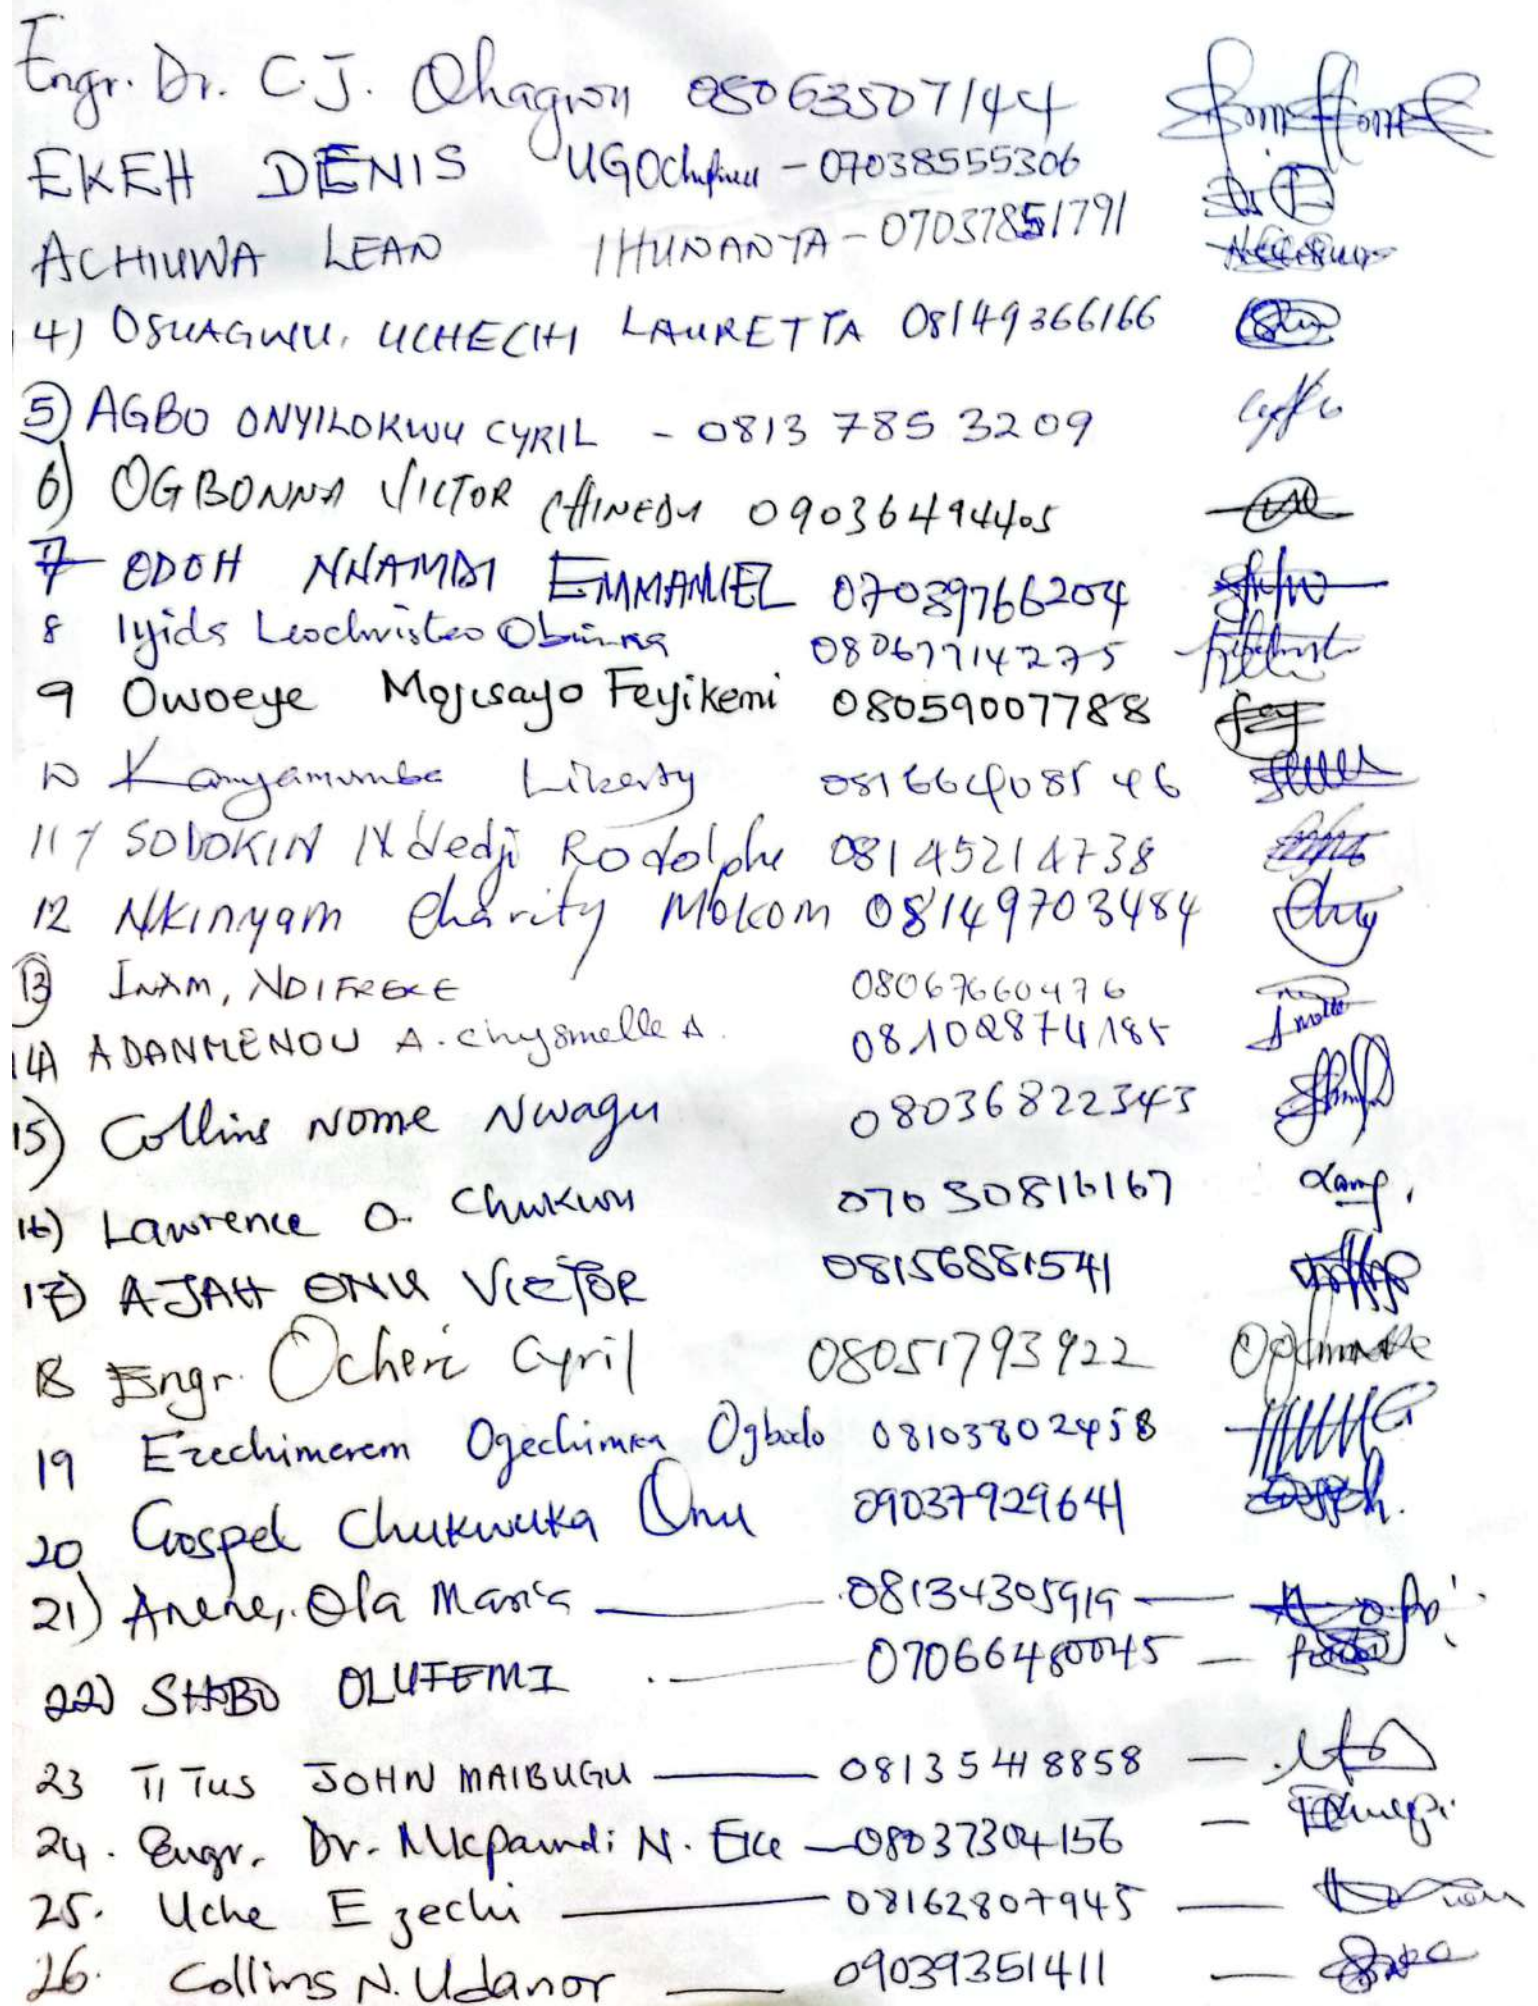 Engr. Dr. C.J. Ohagwu 08063507144
EKEH DENIS UGOchukwu - 07038555306
ACHIUWA LEAN IHUNANYA - 07037851791
4) OSUAGWU, UCHECHI LAURETTA 08149366166
5) AGBO ONYILOKWU CYRIL - 0813 785 3209
6) OGBONNA VICTOR CHINEDU 09036494405
7 ODOH NNAMDI EMMANUEL 07039766204
8 Obinna 08067714275
9 Owoeye Mojisayo Feyikemi 08059007788
10 Kanyamumba Liberty
11 / SODOKIN Ndedji Rodolphe 08145214738
12 Nkinyam Charity Mokom 08149703484
13 INAM, NDIFREKE 08067660476
14) ADANMENOU A. Chysmelle A. 08102874185
15) Collins Nome Nwagu 08036822343
16) Lawrence O. Chukwu 07030816167
17) AJAH ONU VICTOR 08156881541
18 Engr. Ocheri Cyril 08051793922
19 Ezechimerem Ogechimka Ogbodo 08103802458
20 Gospel Chukwuka Onu 09037929641
21) Anene, Ola Maria 08134305919
22) SHOBO OLUFEMI 07066480045
23 TITUS JOHN MAIBUGU 08135418858
24. Engr. Dr. Nkpamdi N. Eke - 08037304156
25. Uche Ezechi 08162807945
26. Collins N. Udanor 09039351411